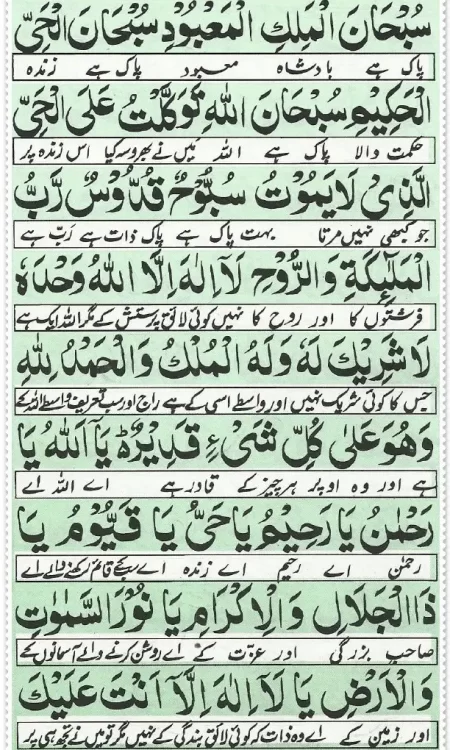 سُبْحَانَ الْمَلِكِ الْمَعْبُوْدِ سُبْحَانَ الْحَيِّ
پاک ہے بادشاہ معبود پاک ہے زندہ
الْحَكِيْمِ سُبْحَانَ اللهِ تَوَكَّلْتُ عَلَى الْحَيِّ
حکمت والا پاک ہے اللہ میں نے بھروسہ کیا اس زندہ پر
الَّذِىْ لَا يَمُوْتُ سُبُّوْحٌ قُدُّوْسٌ رَّبُّ
جو کبھی نہیں مرتا بہت پاک ہے پاک ذات ہے رب ہے
الْمَلٰٓئِكَةِ وَالرُّوْحِ لَآ اِلٰهَ اِلَّا اللهُ وَحْدَهٗ
فرشتوں کا اور روح کا نہیں کوئی لائق پرستش کے مگر اللہ ایک ہے
لَا شَرِيْكَ لَهٗ وَلَهُ الْمُلْكُ وَالْحَمْدُ لِلّٰهِ
جس کا کوئی شریک نہیں اور واسطے اسی کے ہے راج اور سب تعریف واسطے اللہ کے
وَهُوَ عَلٰى كُلِّ شَىْءٍ قَدِيْرٌ يَآ اَللهُ يَا
ہے اور وہ اوپر ہر چیز کے قادر ہے اے اللہ اے
رَحْمٰنُ يَا رَحِيْمُ يَا حَيُّ يَا قَيُّوْمُ يَا
رحمٰن اے رحیم اے زندہ اے سب کے قائم رکھنے والے اے
ذَا الْجَلَالِ وَالْاِكْرَامِ يَا نُوْرَ السَّمٰوٰتِ
صاحب بزرگی اور عزت کے اے روشن کرنے والے آسمانوں کے
وَالْاَرْضِ يَا لَآ اِلٰهَ اِلَّآ اَنْتَ عَلَيْكَ
اور زمین کے اے وہ ذات کہ کوئی لائق بندگی کے نہیں مگر تو میں نے تجھ ہی پر